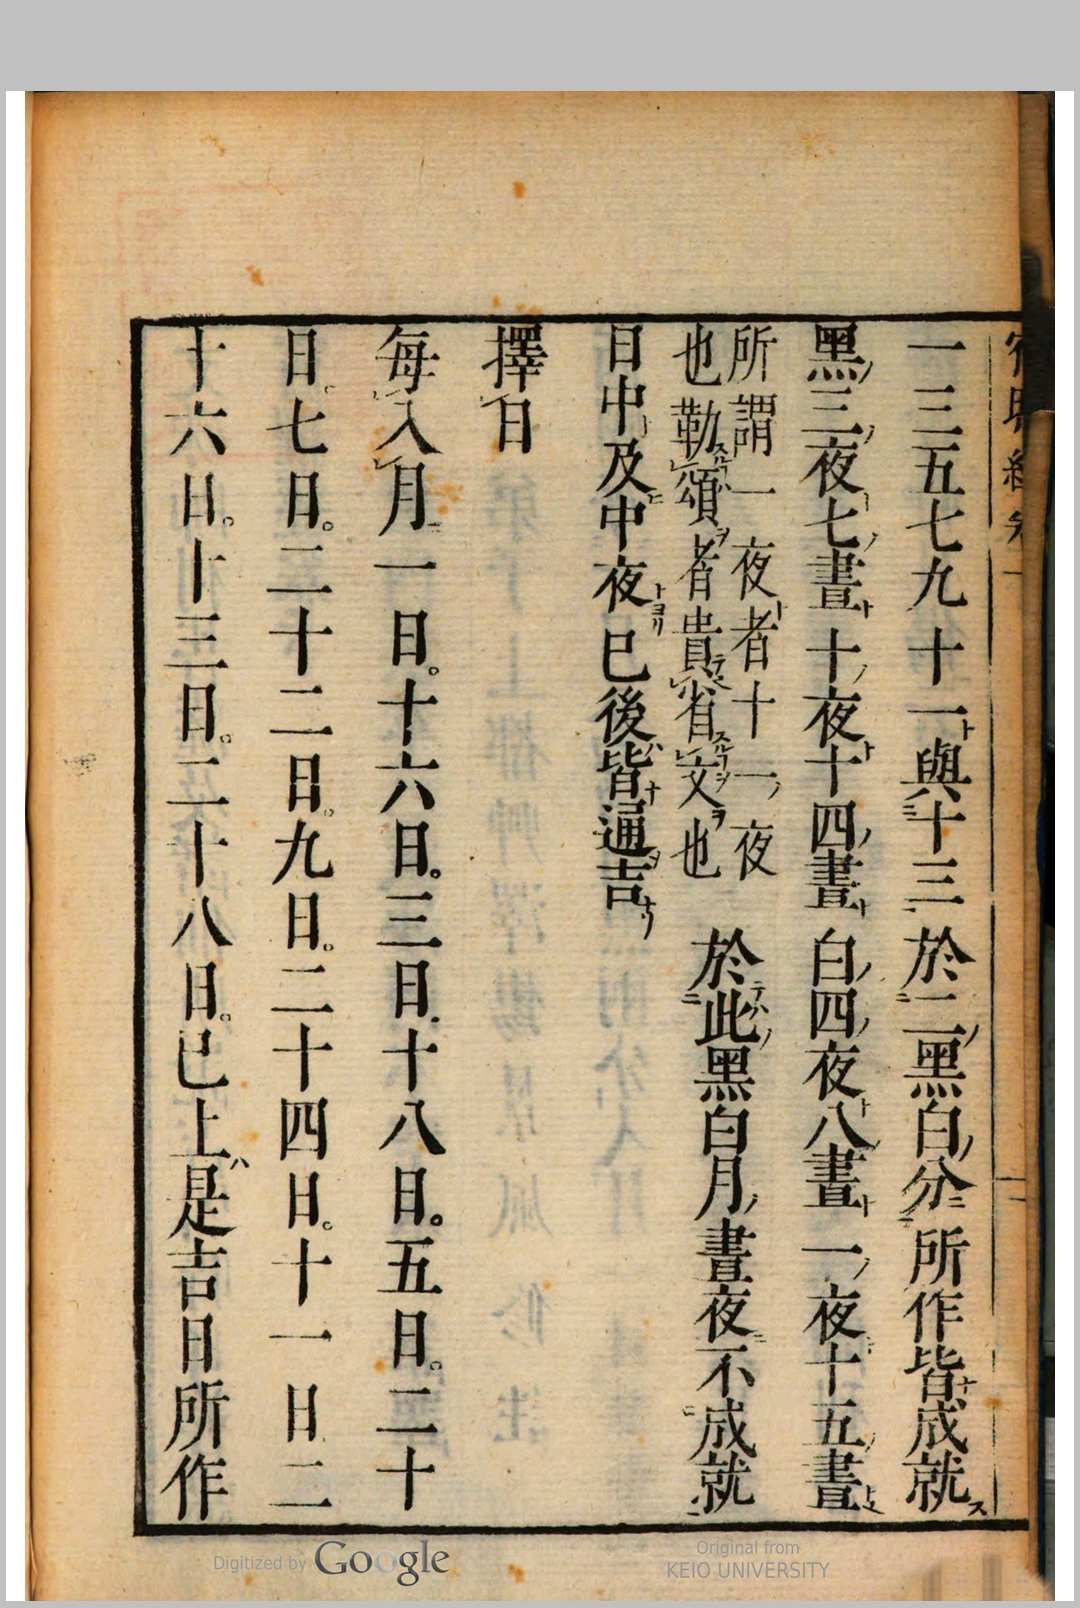 一三五七九十一與十三於二黑白分所作皆成就
黑三夜七晝十夜十四晝白四夜八晝一夜十五晝
所謂一夜者十一夜
也勒頌者貴省文也
於此黑白月晝夜不成就
日中及中夜已後皆通吉
擇日
每入月一日。十六日。三日。十八日。五日。二十
日。七日。二十二日。九日。二十四日。十一日二
十六日。十三日。二十八日。已上是吉日所作
Digitized by Google
Original from
KEIO UNIVERSITY